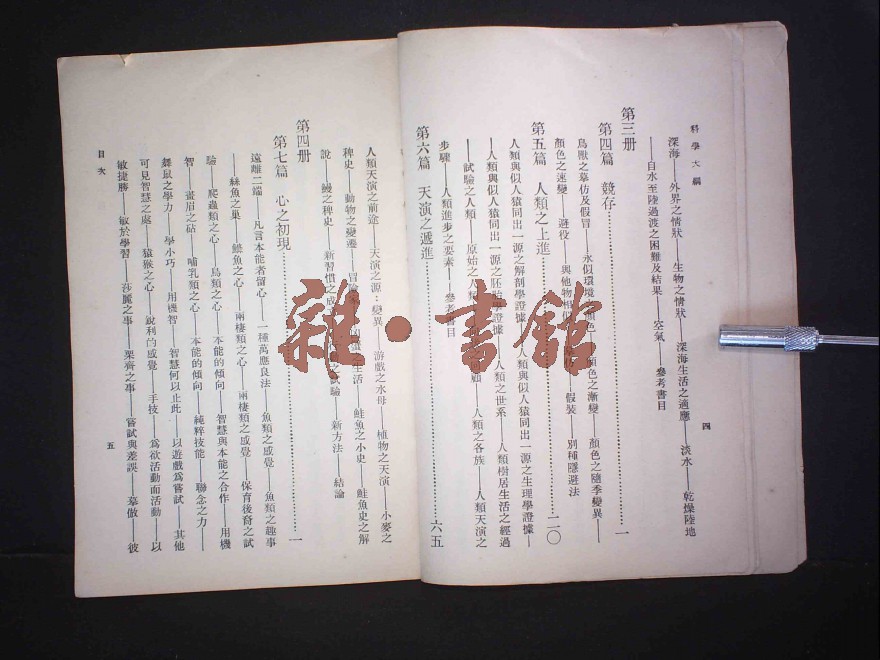 科學大綱
四
深海——外界之情狀——生物之情狀——深海生活之適應——淡水——乾燥陸地
——自水至陸過渡之困難及結果——空氣——參考書目
第三册
第四篇 競存……一
鳥獸之摹仿及假冒——永似環境之顏色——顏色之漸變——顏色之隨季變異——
顏色之速變——避役——與他物相似——假裝——別種隱避法
第五篇 人類之上進……二〇
人類與似人猿同出一源之解剖學證據——人類與似人猿同出一源之生理學證據——
人類與似人猿同出一源之胚胎學證據——人類之世系——人類樹居生活之經過
——試驗之人類——原始之人類——人類之各族——人類天演之
步驟——人類進步之要素——參考書目
第六篇 天演之遞進……六五
人類天演之前途——天演之源：變異——游戲之水母——植物之天演——小麥之
稗史——動物之變遷——生活——鮭魚之小史——鮭魚史之解
說——鰻之稗史——新習慣之成——試驗——新方法——結論
第四册
第七篇 心之初現……一
遠離二端——凡言本能者留心——一種萬應良法——魚類之感覺——魚類之趣事
——絲魚之巢——鰻魚之心——兩棲類之心——兩棲類之感覺——保育後裔之試
驗——爬蟲類之心——鳥類之心——本能的傾向——智慧與本能之合作——用機
智——畫眉之砧——哺乳類之心——本能的傾向——純粹技能——聯念之力——
舞鼠之學力——學小巧——用機智——智慧何以止此——以遊戲爲嘗試——其他
可見智慧之處——猿猴之心——銳利的感覺——手技——爲欲活動而活動——以
敏捷勝——敏於學習——莎麗之事——栗齊之事——嘗試與差誤——摹倣——彼
目次
五
雜·書館